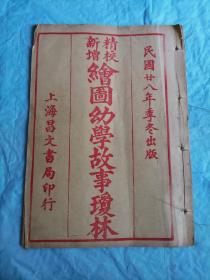 民國廿八年季冬出版
精校
新增
繪圖幼學故事瓊林
上海昌文書局印行